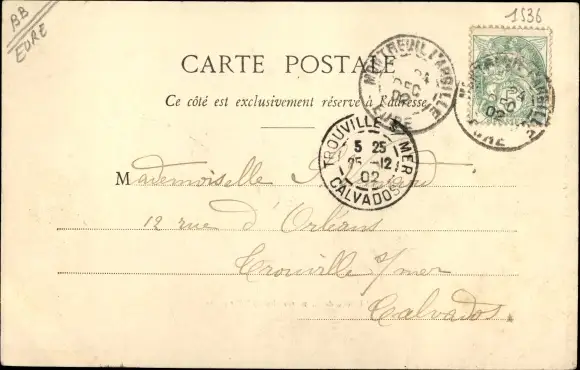 BB
EURE
1536
CARTE POSTALE
Ce côté est exclusivement réservé à l'adresse
MONTREUIL L'ARGILLE
24
DEC
02
EURE
MONTREUIL L'ARGILLE
24
DEC
02
EURE
5
TROUVILLE S MER
5 25
25 -12
02
CALVADOS
Mademoiselle
12 rue d'Orléans
Trouville s/mer
Calvados.